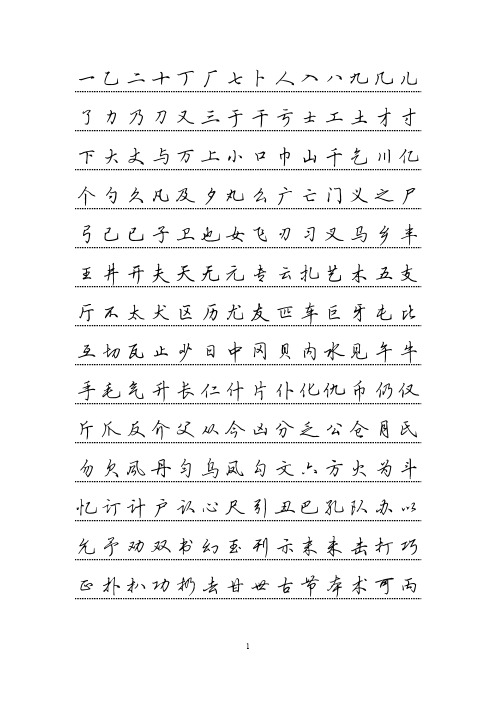 一乙二十丁厂七卜人入八九几儿
了力乃刀又三于干亏士工土才寸
下大丈与万上小口巾山千乞川亿
个勺久凡及夕丸么广亡门义之尸
弓己已子卫也女飞刃习叉马乡丰
王井开夫天无元专云扎艺木五支
厅不太犬区历尤友匹车巨牙屯比
互切瓦止少日中冈贝内水见午牛
手毛气升长仁什片仆化仇币仍仅
斤爪反介父从今凶分乏公仓月氏
勿欠风丹匀乌凤勾文六方火为斗
忆订计户认心尺引丑巴孔队办以
允予劝双书幻玉刊示末未击打巧
正扑扒功扔去甘世古节本术可丙
1